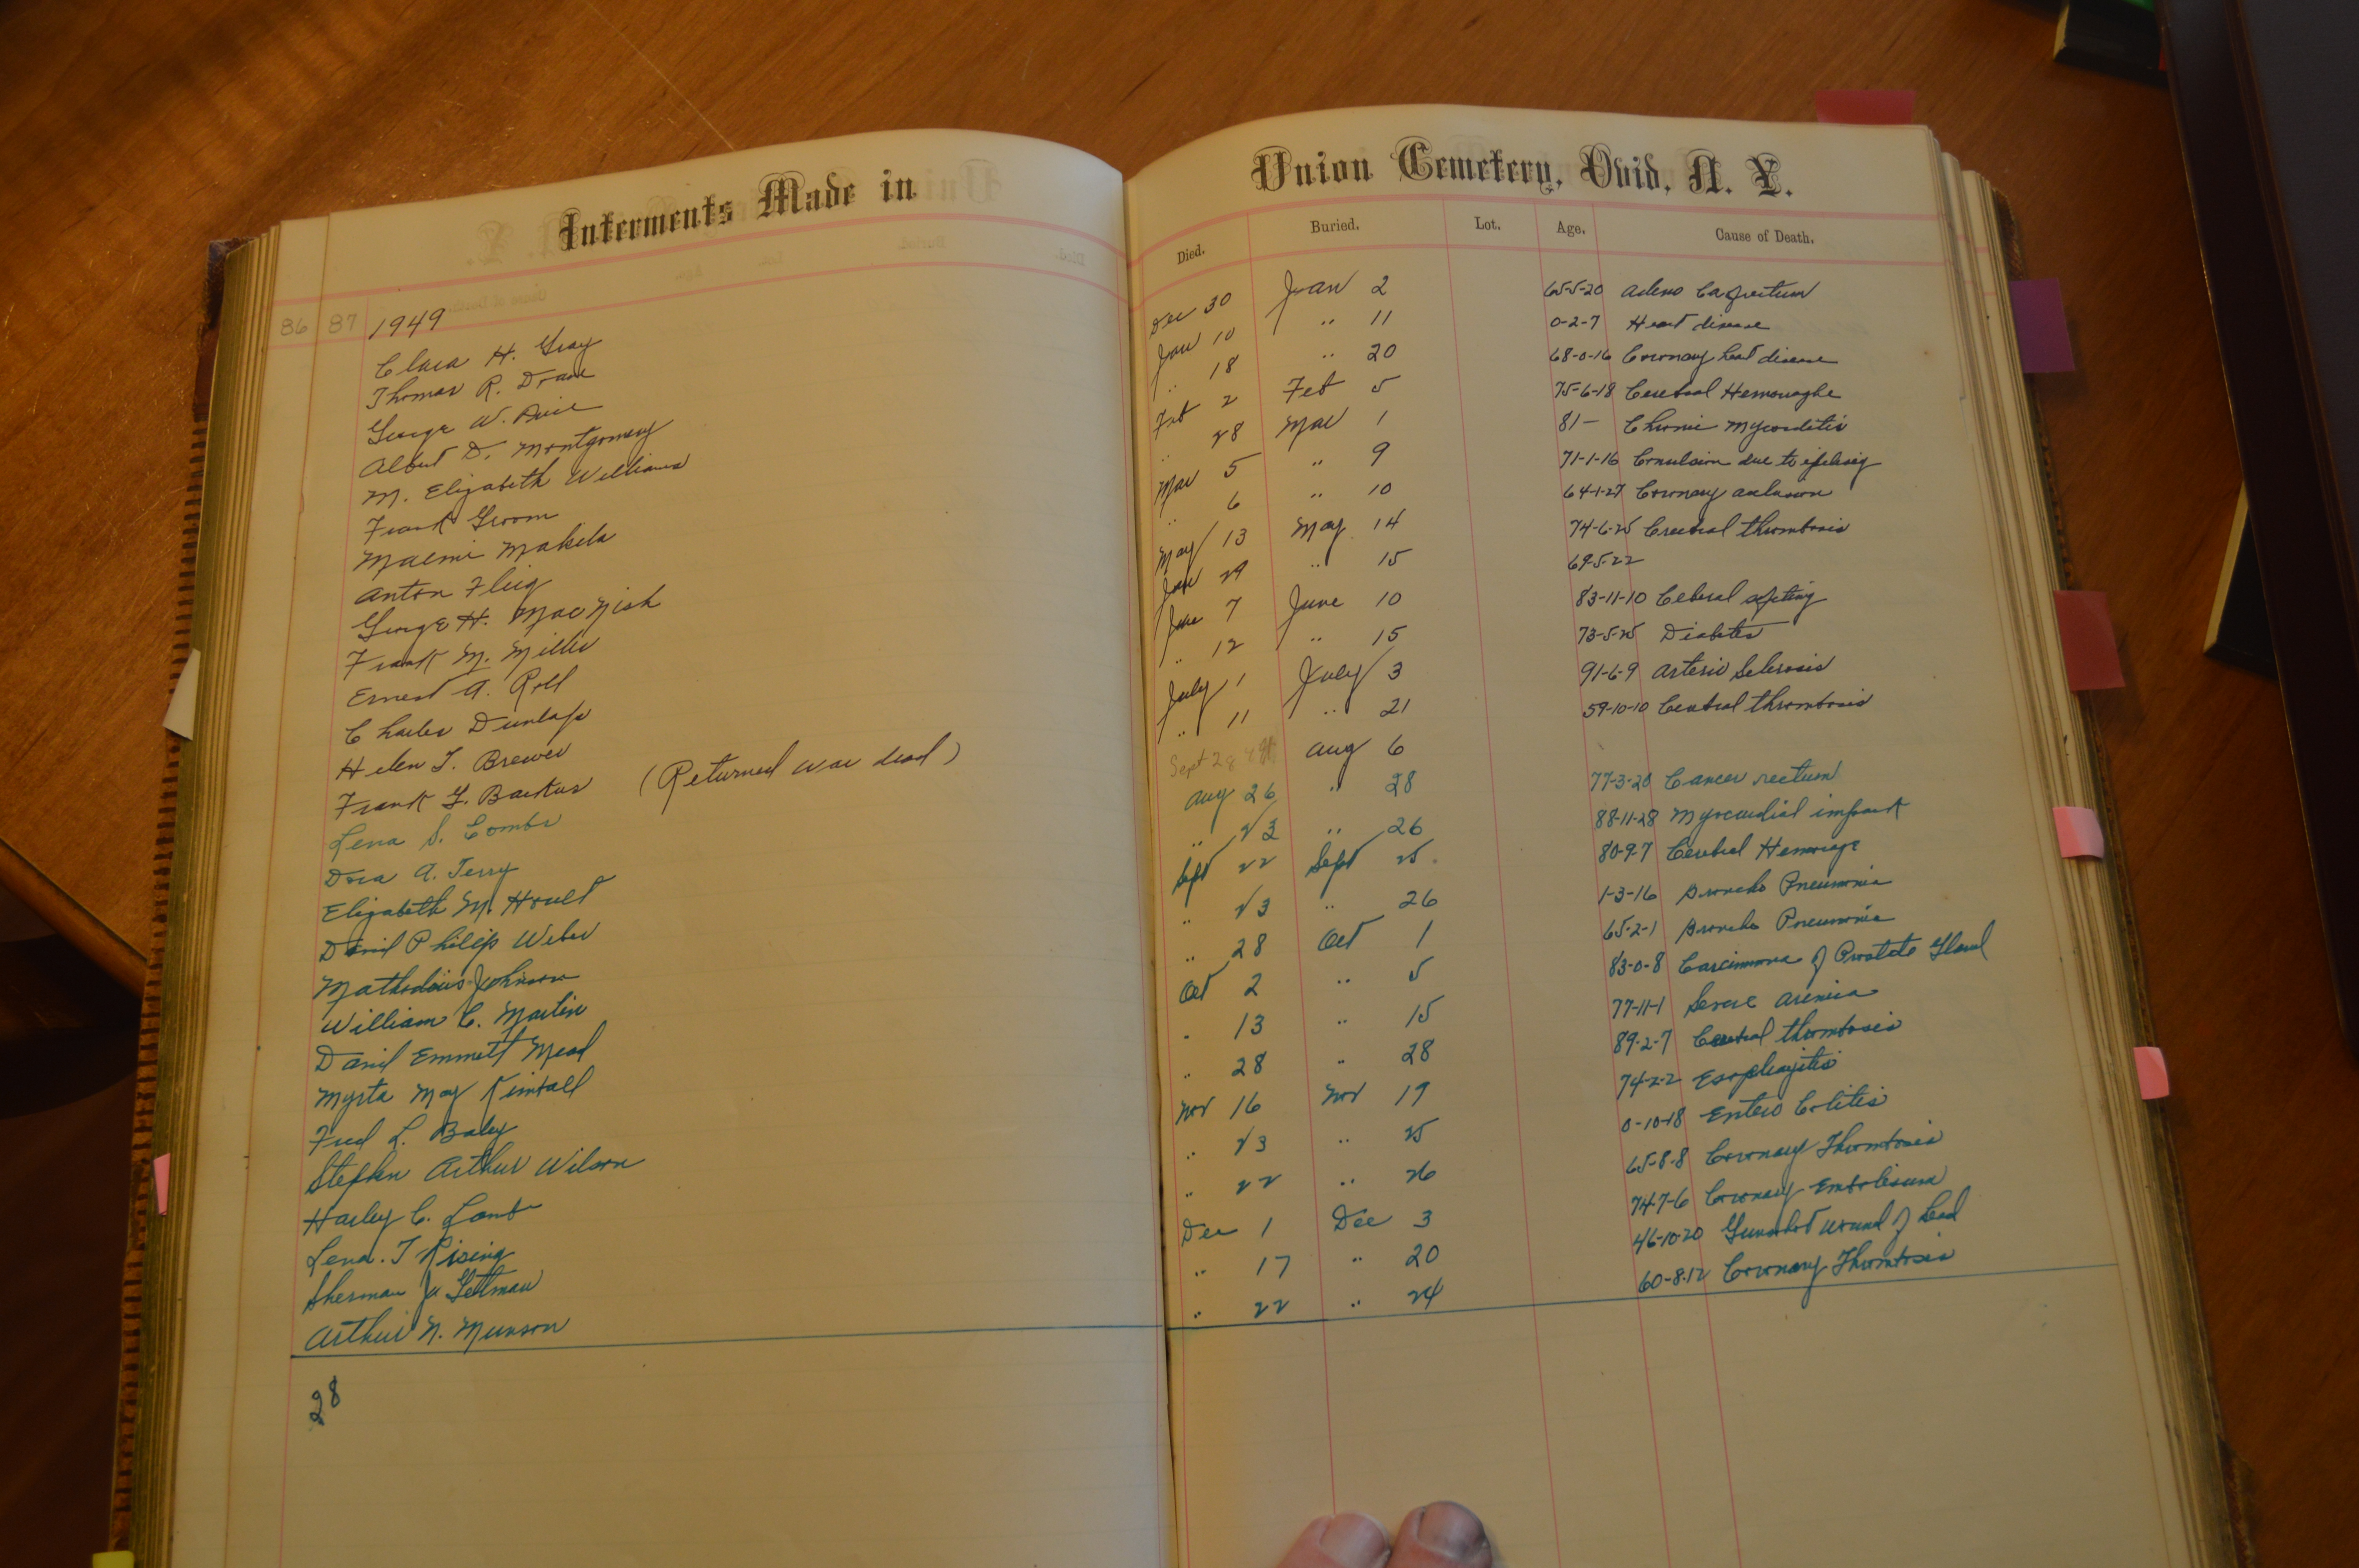 Interments Made in
86 87 1949
Clara H. Gray
Thomas R. Drane
George W.
Albert D. Montgomery
M. Elizabeth Williams
Frank Groom
Maemi Makela
Anton Flieg
George H. MacNish
Frank M. Miller
Ernest A. Roll
Charles Dunlap
Helen T. Brewer
Frank G. Backus (Returned war dead)
Lena S. Combs
Dora A. Terry
Elizabeth M. Hoult
David Philip Weber
Johnson
William C. Martin
David Emmett Mead
Myrta May Kimball
Fred L. Baley
Stephen Arthur Wilson
Harley C. Lamb
Lena. T Rising
Sherman Gettman
Arthur N. Munson
28
Union Cemetery, Ovid, N. Y.
Died. Buried. Lot. Age. Cause of Death.
Dec 30 Jan 2 65-5-20 Adeno Ca rectum
Jan 10 " 11 0-2-7 Heart disease
" 18 " 20 68-0-16 Coronary heart disease
Feb 2 Feb 5 75-6-18 Cerebral Hemorraghe
" 28 Mar 1 81- Chronic Myocarditis
Mar 5 " 9 71-1-16 Convulsion due to epilepsy
" 6 " 10 64-1-27 Coronary occlusion
May 13 May 14 74-6-25 Cerebral thrombosis
Jan 29 " 15 69-5-22
June 7 June 10 83-11-10
" 12 " 15 73-5-25 Diabetes
July 1 July 3 91-6-9 Arterio Sclerosis
" 11 " 21 59-10-10 Cerebral thrombosis
Sept 28 Aug 6
Aug 26 " 28 77-3-20 Cancer rectum
" 23 " 26 88-11-28 Myocardial infarct
Sept 22 Sept 25 80-9-7 Cerebral Hemorage
" 23 " 26 1-3-16 Broncho Pneumonia
" 28 Oct 1 65-2-1 Broncho Pneumonia
Oct 2 " 5 83-0-8 Carcinoma of Prostate Gland
" 13 " 15 77-11-1 Severe anemia
" 28 " 28 89-2-7 Cerebral thrombosis
Nov 16 Nov 19 74-2-2 Esophagitis
" 23 " 25 0-10-18 Entero Colitis
" 22 " 26 65-8-8 Coronary Thrombosis
Dec 1 Dec 3 74-7-6 Coronary Embolism
" 17 " 20 46-10-20 Gunshot wound of head
" 22 " 24 60-8-12 Coronary Thrombosis